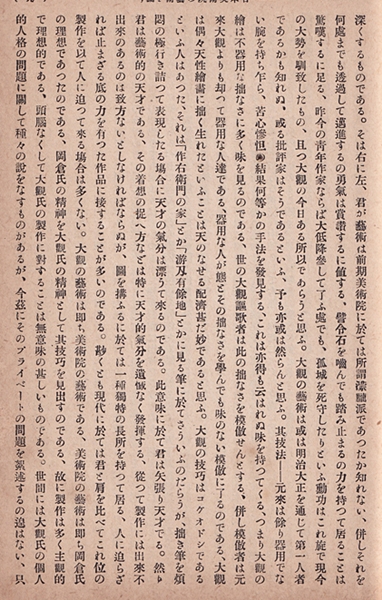 深くするものである。そは右に左、君が藝術は前期美術院に於ては所謂朦朧派であつたか知れない、併しそれを
何處までも透過して邁進するの勇氣は賞讃するに値する、臂令石を嚙んでも踏み止まるの力を持て居ることは
驚嘆するに足る、昨今の靑年作家ならば大低降參して了ふ處でも、孤城を死守したりといふ勳功はこれ旋で現今
の大勢を馴致したもの、且つ大觀の今日ある所以であらうと思ふ。大觀の藝術は或は明治大正を通じて第一人者
であるかも知れぬ、或る批評家はそであるといふ、予も亦或は然らんと思ふ。其技法――元來は餘り器用でな
い腕を持ち乍ら、苦心慘怛の結果何等かの手法を發見する、これは亦得も云はれぬ味を持つてくる、つまり大觀の
繪は不器用な拙なさに多く味を見るのである、世の大觀謳歌者は此の拙なさを模倣せんとする、併し模倣者は元
來大觀よりも却つて器用な人達である、器用な人が態とその拙なさを學んでも味のない模倣に了るのである、大觀
は偶々天性繪畵に拙く生れたといふことは天のなせる配濟甚だ妙であると思ふ。大觀の技巧はコケオドシである
といふ人はあつた、それは『作右衛門の家』とか『游刄有餘地』とかに見る筆に於てさういふのだらうが拙き筆を煩
悶の極行き詰つて表現したる塲合に天才の氣分は漂うて來るのである。此意味に於て君は矢張り天才である。然り
君は藝術的の天才である、その着想の捉へ方などは特に天才的氣分を遺憾なく發揮する、從つて製作には出來不
出來のあるのは致方ないとしなければならぬが、圖を搆ふるに於ては一種獨特の長所を持て居る、人に迫らざ
れば止まざる底の力を有つた作品に接することが多いのである。尠くとも現代に於ては君と肩を比べてこれ位の
製作を以て人に迫つて來る塲合は多くない。大觀の藝術は卽ち美術院の藝術である、美術院の藝術は卽ち岡倉氏
の理想であつたのである、岡倉氏の精神を大觀氏の精神として其技巧を見出すのである、故に製作は多く主觀的
で理想的である。頭腦なくして大觀氏の製作に對することは無意味の甚しいものである。世間には大觀氏の個人
的人格の問題に關して種々の說をなすものがあるが、今茲にそのプライベートの問題を絮述するの遑はない、只